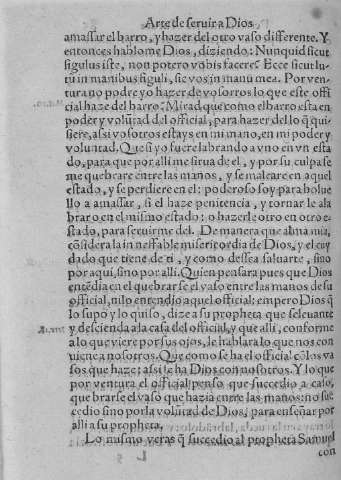 Arte de seruir a Dios
amassar el barro, y hazer del otro vaso differente. Y
entonces hablome Dios, diziendo: Nunquid sicut
figulus iste, non potero vobis facere? Ecce sicut lu-
tũ in manibus figuli, sic vos in manu mea. Por ven-
tura no podre yo hazer de vosotros lo que este offi
cial haze del barro? Mirad que como el barro esta en
poder y volũtad del official, para hazer dello q̃ qui-
siere, assi vosotros estays en mi mano, en mi poder y
voluntad. Que si yo fuere labrando a vno en vn esta
do, para que por alli me sirua de el, y por su culpa se
me quebrare entre las manos, y se maleare en aquel
estado, y se perdiere en el: poderoso soy para boluer
llo a amassar, si el haze penitencia, y tornar le a la
brar o en el mismo estado: o hazerle otro en otro e-
stado, para seruirme del. De manera que alma mia,
cõsidera la in neffable misericordia de Dios, y el cuy
dado que tiene de ti, y como dessea saluarte, sino
por aqui, sino por alli. Quien pensara pues que Dios
entẽdia en el quebrar se el vaso entre las manos de su
official, ni lo entendio aquel official: empero Dios q̃
lo supo y lo quiso, dize a su propheta que se leuante
y descienda a la casa del official, y que alli, conforme
a lo que viere por sus ojos, le hablara lo que nos con
uiene a nosotros. Que como se ha el official cõ los va
sos que haze: assi se ha Dios con nosotros. Y lo que
por ventura el official penso que succedio a caso,
que brarse el vaso que hazia entre las manos: no suc
cedio sino por la volũtad de Dios, para enseñar por
alli a su propheta.
Lo mismo veras q̃ succedio al propheta Samuel
con